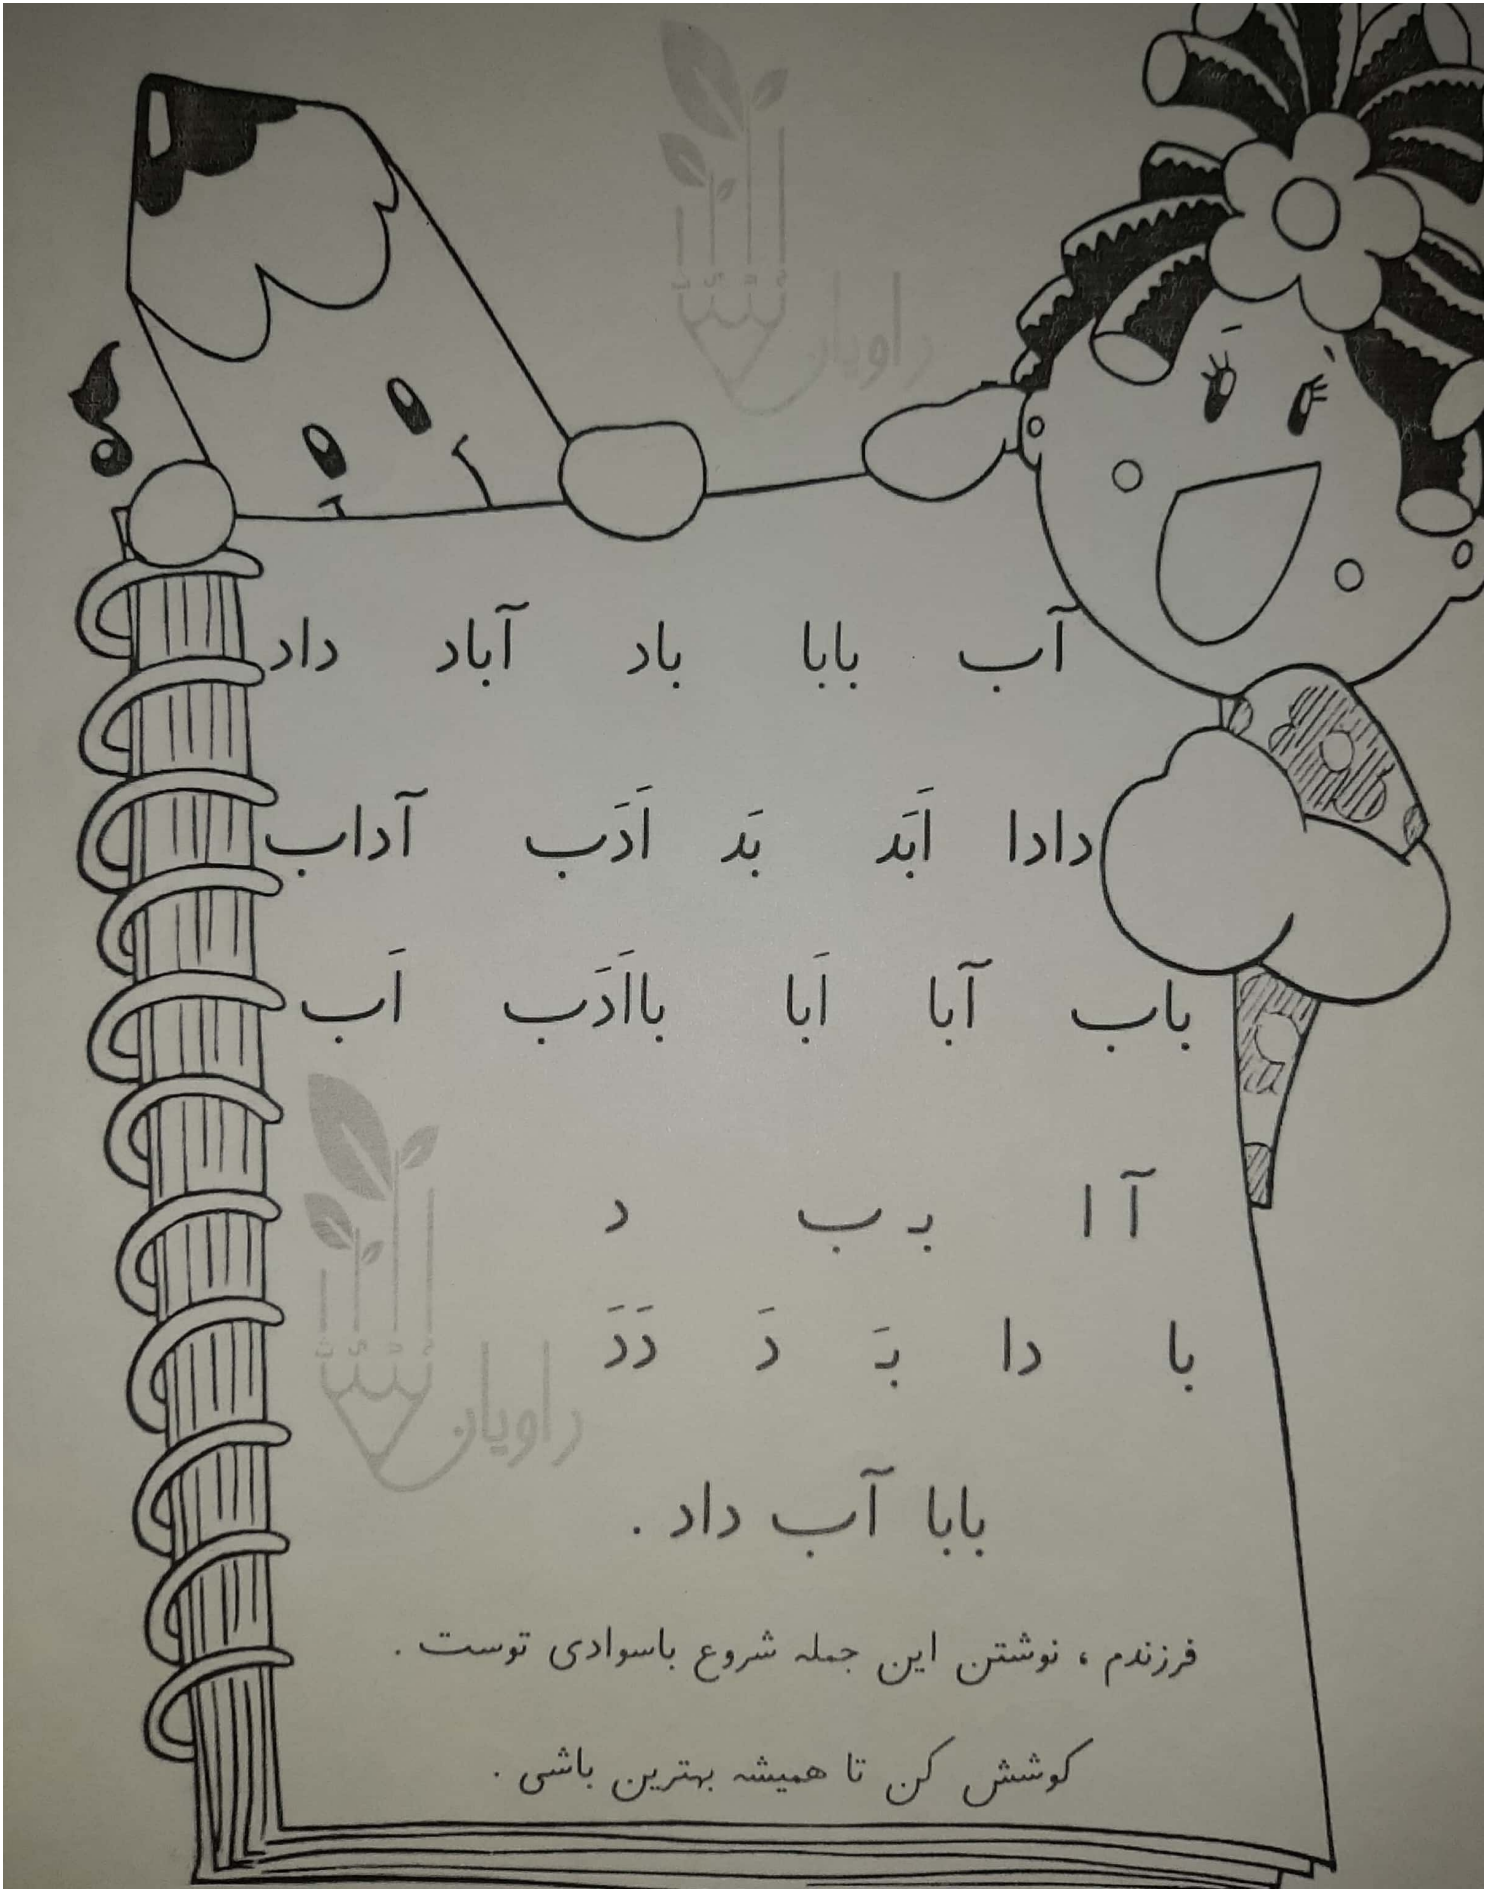 راویان
آب بابا باد آباد داد
دادا اَبَد بَد اَدَب آداب
باب آبا اَبا بااَدَب اَب
آ ا بـ ب د
با دا بَـ دَ دَدَ
راویان
بابا آب داد .
فرزندم ، نوشتن این جمله شروع باسوادی توست .
کوشش کن تا همیشه بهترین باشی .